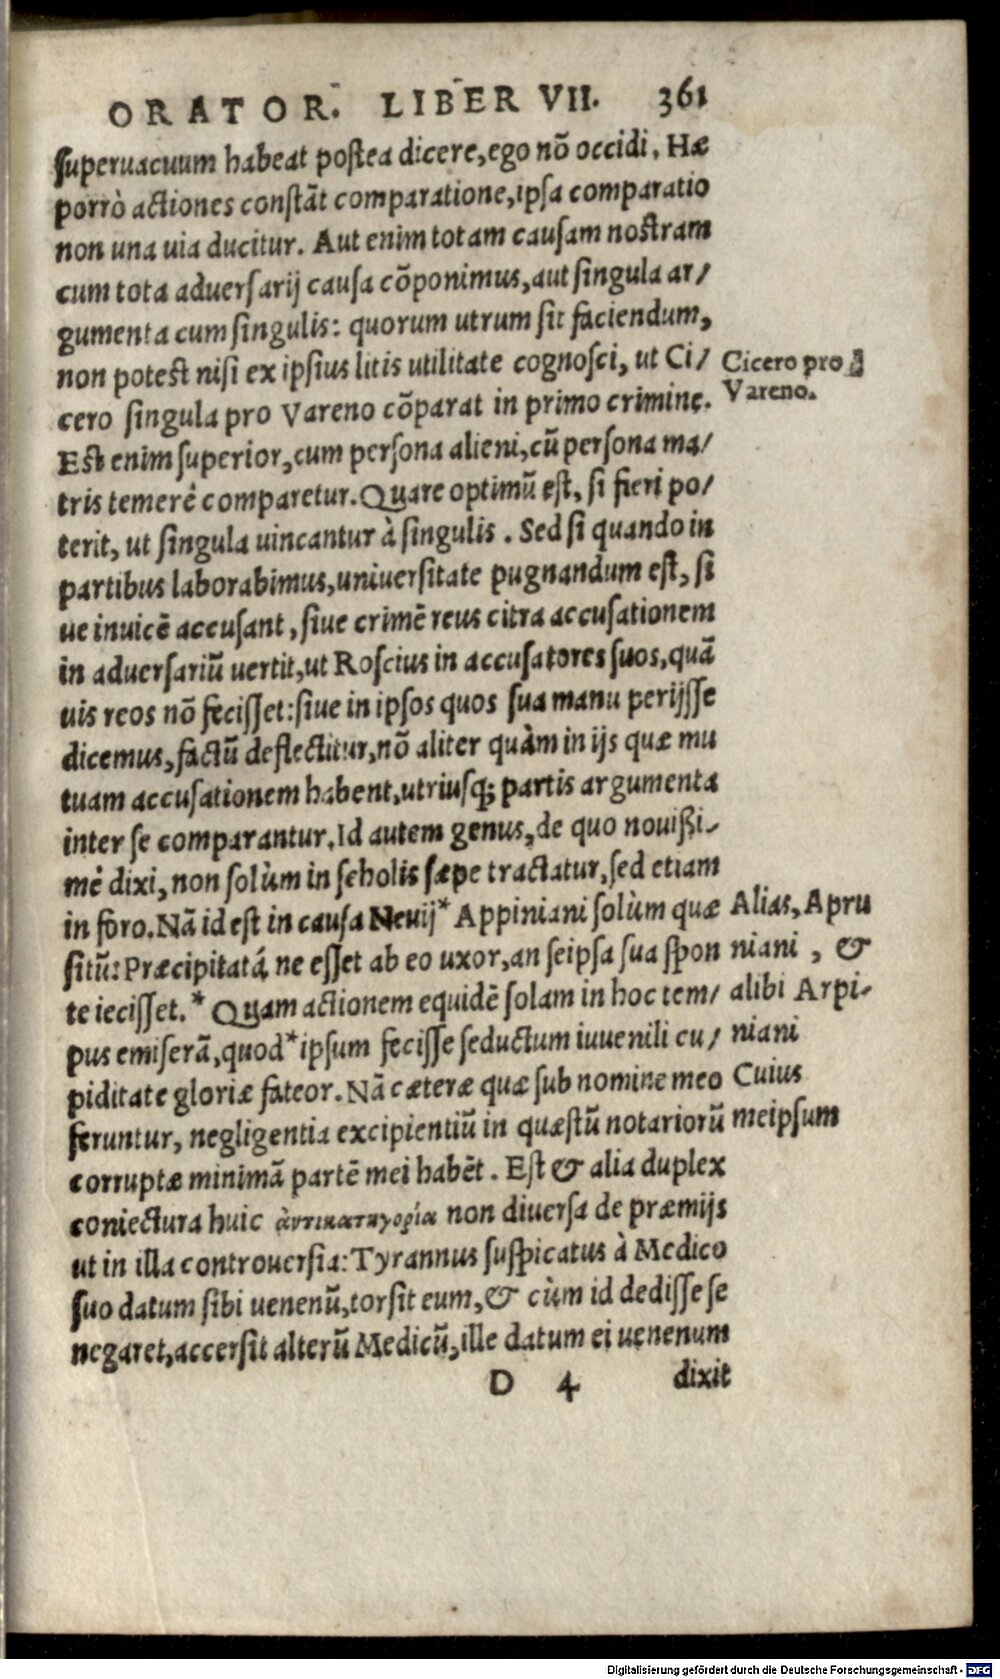 ORATOR. LIBER VII. 361
superuacuum habeat postea dicere, ego nõ occidi. Hæ
porrò actiones constãt comparatione, ipsa comparatio
non una uia ducitur. Aut enim totam causam nostram
cum tota aduersarij causa cõponimus, aut singula ar/
gumenta cum singulis: quorum utrum sit faciendum,
non potest nisi ex ipsius litis utilitate cognosci, ut Ci/
cero singula pro Vareno cõparat in primo crimine.
Cicero pro
Vareno.
Est enim superior, cum persona alieni, cũ persona ma/
tris temerè compararetur. Quare optimũ est, si fieri po/
terit, ut singula uincantur à singulis. Sed si quando in
partibus laborabimus, uniuersitate pugnandum est, si
ue inuicẽ accusant, siue crimẽ reus citra accusationem
in aduersariũ uertit, ut Roscius in accusatores suos, quã
uis reos nõ fecisset: siue in ipsos quos sua manu perijsse
dicemus, factũ deflectitur, nõ aliter quàm in ijs quæ mu
tuam accusationem habent, utriusq; partis argumenta
inter se comparantur. Id autem genus, de quo nouißi-
mè dixi, non solùm in scholis sæpe tractatur, sed etiam
in foro. Nã id est in causa Neuij* Appiniani solùm quæ
sitũ: Præcipitatá ne esset ab eo uxor, an seipsa sua spon
te iecisset.* Quam actionem equidẽ solam in hoc tem/
pus emiserã, quod* ipsum fecisse seductum iuuenili cu/
piditate gloriæ fateor. Nã cæteræ quæ sub nomine meo
feruntur, negligentia excipientiũ in quæstũ notariorũ
Alias, Apru
niani, &
alibi Arpi-
niani
Cuius
meipsum
corruptæ minimã partẽ mei habẽt. Est & alia duplex
coniectura huic ἀντικατηγορία non diuersa de præmijs
ut in illa controuersia: Tyrannus suspicatus à Medico
suo datum sibi uenenũ, torsit eum, & cùm id dedisse se
negaret, accersit alterũ Medicũ, ille datum ei uenenum
D 4 dixit
Digitalisierung gefördert durch die Deutsche Forschungsgemeinschaft - DFG